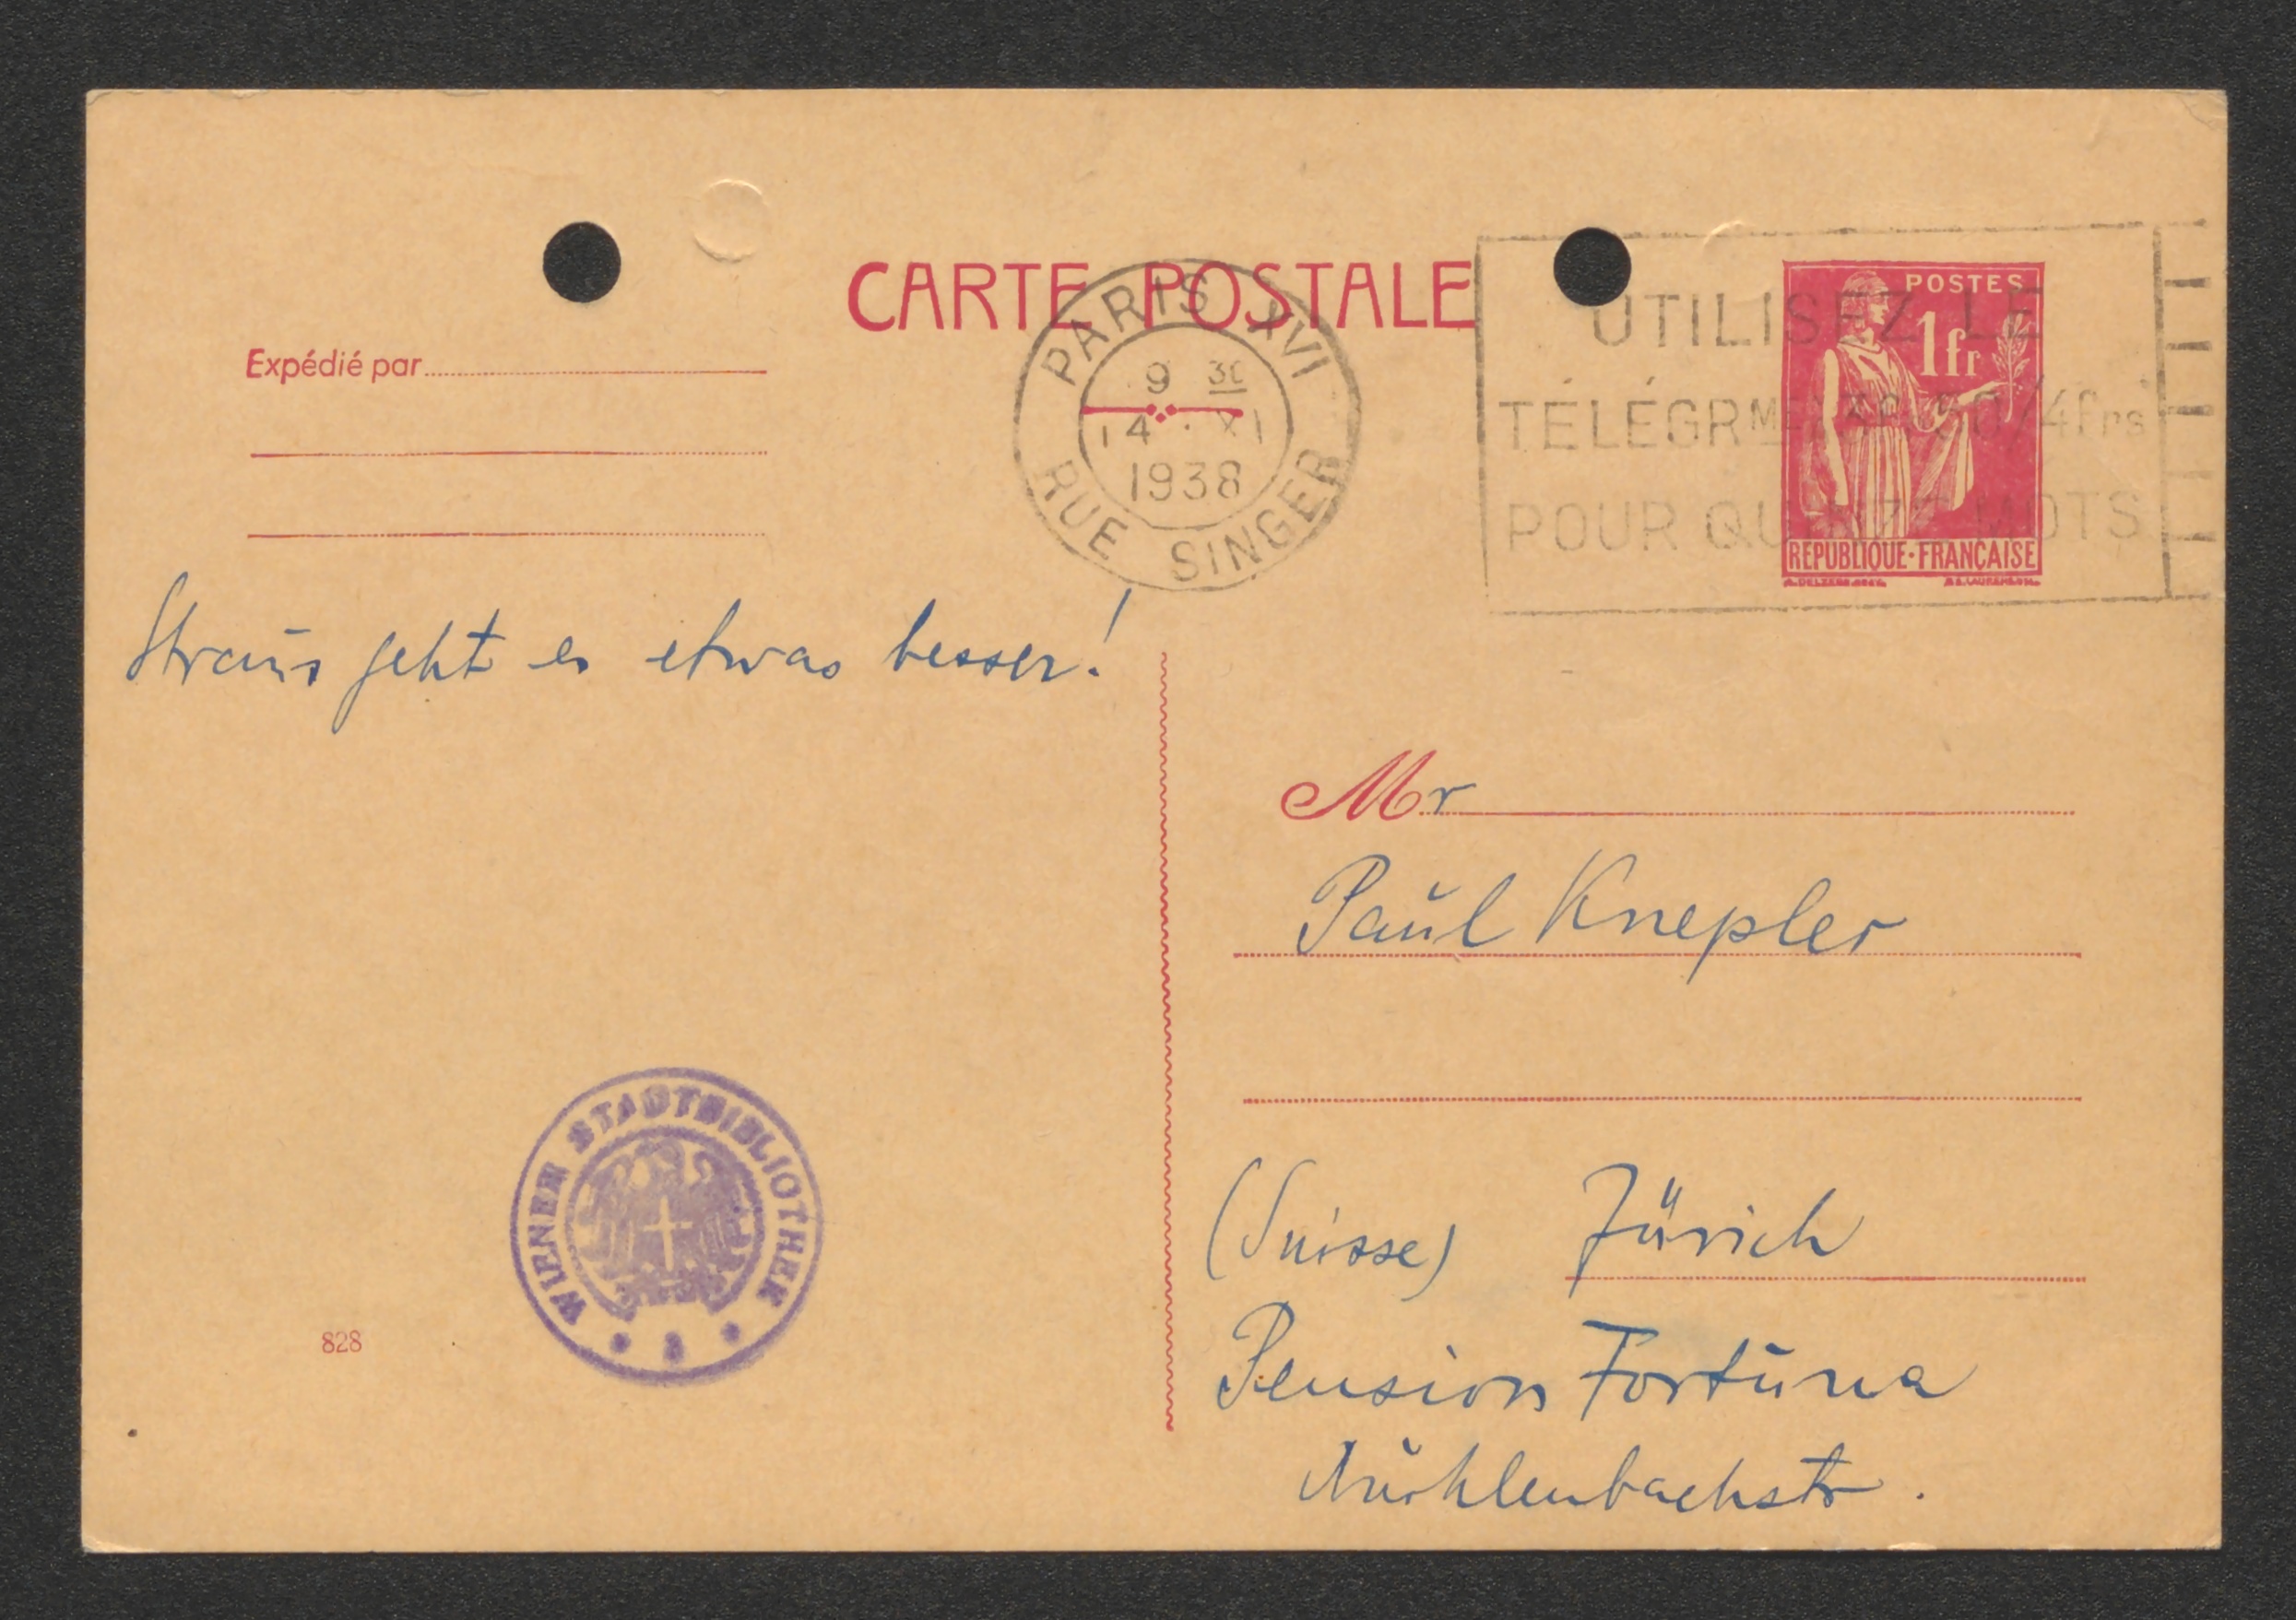 CARTE POSTALE
PARIS XVI
9 30
14 · XI
1938
RUE SINGER
UTILISEZ LE
TÉLÉGRME /4frs
POUR QUINZE MOTS
POSTES
1fr
REPUBLIQUE·FRANÇAISE
Expédié par
Straus geht es etwas besser!
Mr
Paul Knepler
(Suisse) Zürich
Pension Fortuna
Mühlenbachstr.
WIENER STADTBIBLIOTHEK
828